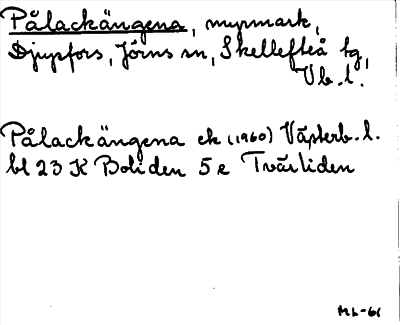 Pålackängena, myrmark,
Djupfors, Jörns sn, Skellefteå tg,
Vb. l.
Pålackängena ek (1960) Västerb. l.
bl 23 K Boliden 5 e Tvärliden
ML-61